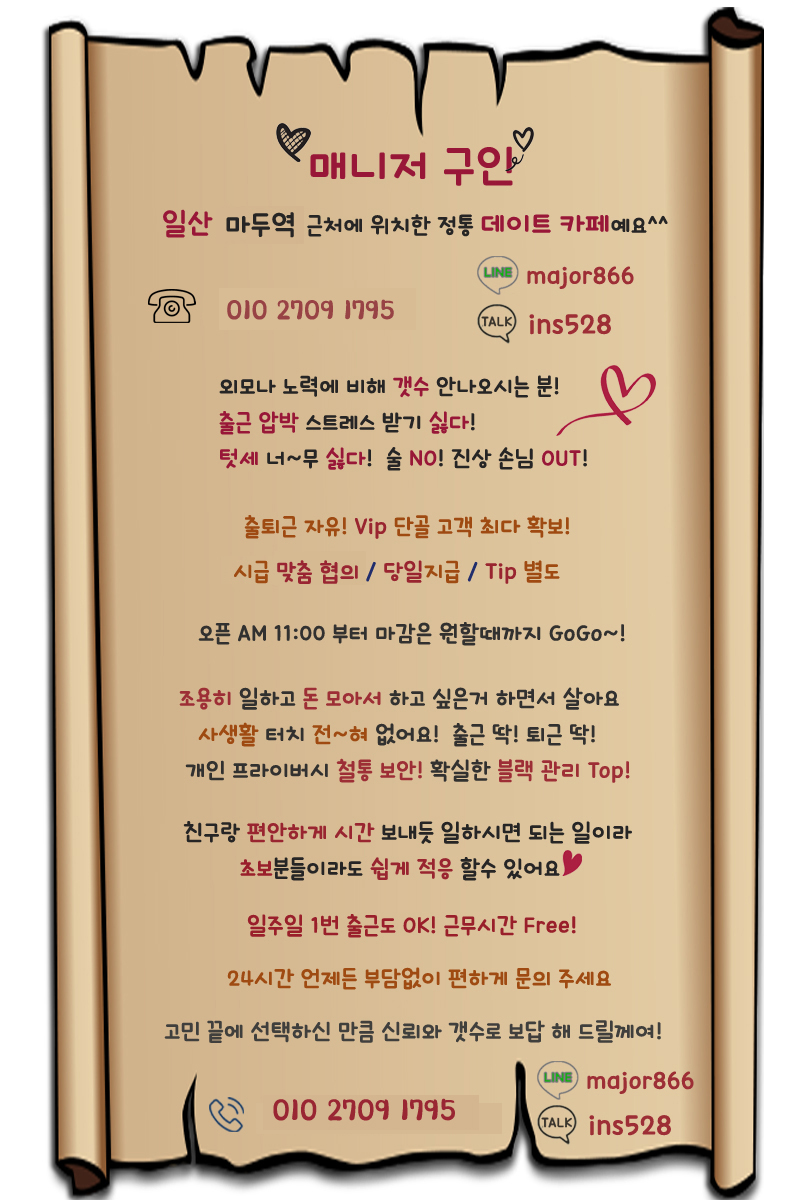 매니저 구인
일산 마두역 근처에 위치한 정통 데이트 카페예요^^
LINE major866
010 2709 1795
TALK ins528
외모나 노력에 비해 갯수 안나오시는 분!
출근 압박 스트레스 받기 싫다!
텃세 너~무 싫다! 술 NO! 진상 손님 OUT!
출퇴근 자유! Vip 단골 고객 최다 확보!
시급 맞춤 협의 / 당일지급 / Tip 별도
오픈 AM 11:00 부터 마감은 원할때까지 GoGo~!
조용히 일하고 돈 모아서 하고 싶은거 하면서 살아요
사생활 터치 전~혀 없어요! 출근 딱! 퇴근 딱!
개인 프라이버시 철통 보안! 확실한 블랙 관리 Top!
친구랑 편안하게 시간 보내듯 일하시면 되는 일이라
초보분들이라도 쉽게 적응 할수 있어요
일주일 1번 출근도 OK! 근무시간 Free!
24시간 언제든 부담없이 편하게 문의 주세요
고민 끝에 선택하신 만큼 신뢰와 갯수로 보답 해 드릴께여!
LINE major866
010 2709 1795
TALK ins528